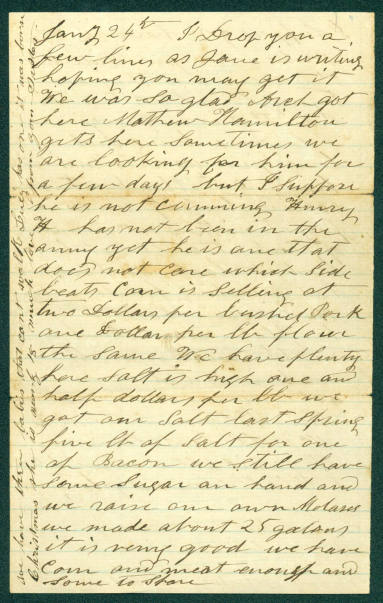 Jany 24th I Drop you a
few lines as Jane is writing
hoping you may get it
We was so glad Arch got
here Mathew Hamilton
gits here Sometimes we
are looking for him for
a few days but I Suppose
he is not cumming Henry
H has not been in the
army yet he is one that
does not care which Side
beats Corn is Selling at
two Dollars per bushel Pork
one Dollar per lb flour
the Same We have plenty
here Salt is high one and
half dollars per lb we
got our Salt last Spring
five lb of Salt for one
of Bacon we still have
Some Sugar on hand and
we raise our own Molases
we made about 25 galons
it is verry good we have
Corn and meat enough and
Some to Spare
we have three babies that can't walk has one it was born
Christmas she is much